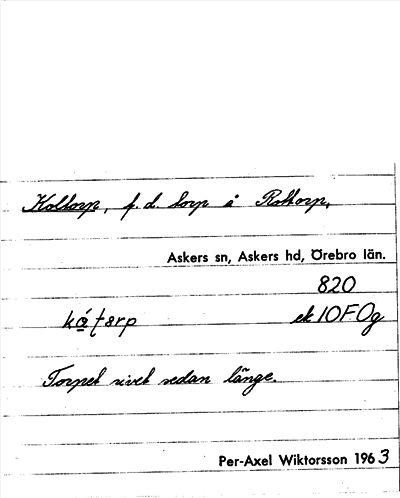 Koltorp, f. d. torp å Rottorp,
Askers sn, Askers hd, Örebro län.
820
ká̱ƫɘrp ek 10F0g
Torpet rivet sedan länge.
Per-Axel Wiktorsson 1963